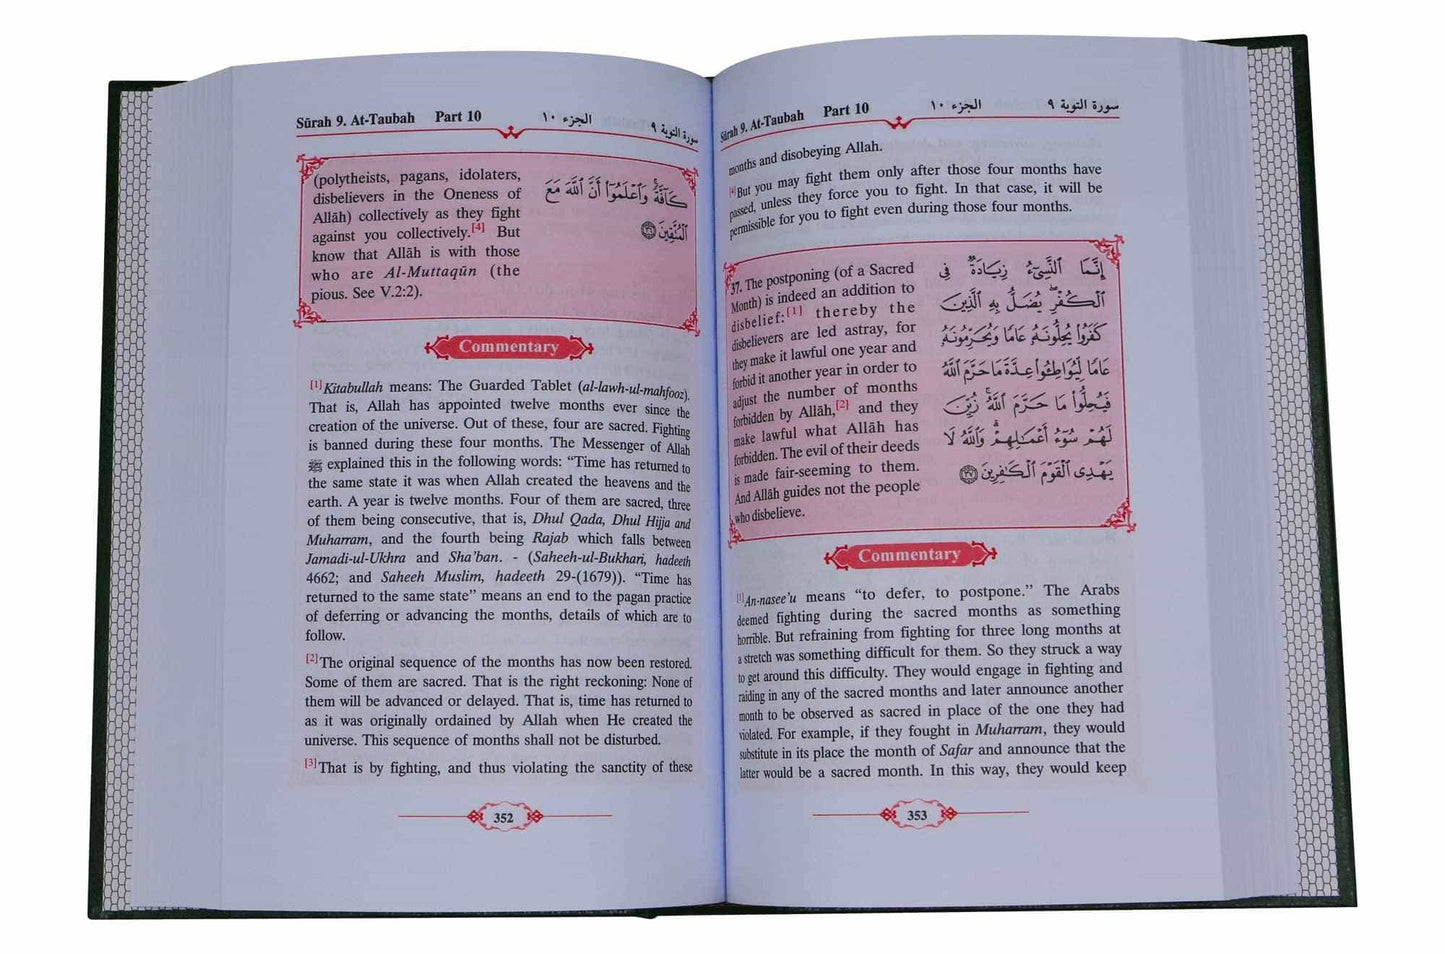 Sūrah 9. At-Taubah Part 10 الجزء ١٠ سورة التوبة ٩
(polytheists, pagans, idolaters,
disbelievers in the Oneness of
Allāh) collectively as they fight
against you collectively.[4] But
know that Allāh is with those
who are Al-Muttaqūn (the
pious. See V.2:2).
كَآفَّةً وَاعْلَمُوٓا أَنَّ اللَّهَ مَعَ
الْمُتَّقِينَ ٣٦
Commentary
[1]Kitabullah means: The Guarded Tablet (al-lawh-ul-mahfooz).
That is, Allah has appointed twelve months ever since the
creation of the universe. Out of these, four are sacred. Fighting
is banned during these four months. The Messenger of Allah
ﷺ explained this in the following words: “Time has returned to
the same state it was when Allah created the heavens and the
earth. A year is twelve months. Four of them are sacred, three
of them being consecutive, that is, Dhul Qada, Dhul Hijja and
Muharram, and the fourth being Rajab which falls between
Jamadi-ul-Ukhra and Sha’ban. - (Saheeh-ul-Bukhari, hadeeth
4662; and Saheeh Muslim, hadeeth 29-(1679)). “Time has
returned to the same state” means an end to the pagan practice
of deferring or advancing the months, details of which are to
follow.
[2]The original sequence of the months has now been restored.
Some of them are sacred. That is the right reckoning: None of
them will be advanced or delayed. That is, time has returned to
as it was originally ordained by Allah when He created the
universe. This sequence of months shall not be disturbed.
[3]That is by fighting, and thus violating the sanctity of these
352
Sūrah 9. At-Taubah Part 10 الجزء ١٠ سورة التوبة ٩
months and disobeying Allah.
[4]But you may fight them only after those four months have
passed, unless they force you to fight. In that case, it will be
permissible for you to fight even during those four months.
37. The postponing (of a Sacred
Month) is indeed an addition to
disbelief:[1] thereby the
disbelievers are led astray, for
they make it lawful one year and
forbid it another year in order to
adjust the number of months
forbidden by Allāh,[2] and they
make lawful what Allāh has
forbidden. The evil of their deeds
is made fair-seeming to them.
And Allāh guides not the people
who disbelieve.
إِنَّمَا النَّسِيٓءُ زِيَادَةٌ فِى
الْكُفْرِ يُضَلُّ بِهِ الَّذِينَ
كَفَرُوا يُحِلُّونَهُۥ عَامًا وَيُحَرِّمُونَهُۥ
عَامًا لِّيُوَاطِـُٔوا عِدَّةَ مَا حَرَّمَ اللَّهُ
فَيُحِلُّوا مَا حَرَّمَ اللَّهُ زُيِّنَ
لَهُمْ سُوٓءُ أَعْمَـٰلِهِمْ وَاللَّهُ لَا
يَهْدِى الْقَوْمَ الْكَـٰفِرِينَ ٣٧
Commentary
[1]An-nasee’u means “to defer, to postpone.” The Arabs
deemed fighting during the sacred months as something
horrible. But refraining from fighting for three long months at
a stretch was something difficult for them. So they struck a way
to get around this difficulty. They would engage in fighting and
raiding in any of the sacred months and later announce another
month to be observed as sacred in place of the one they had
violated. For example, if they fought in Muharram, they would
substitute in its place the month of Safar and announce that the
latter would be a sacred month. In this way, they would keep
353